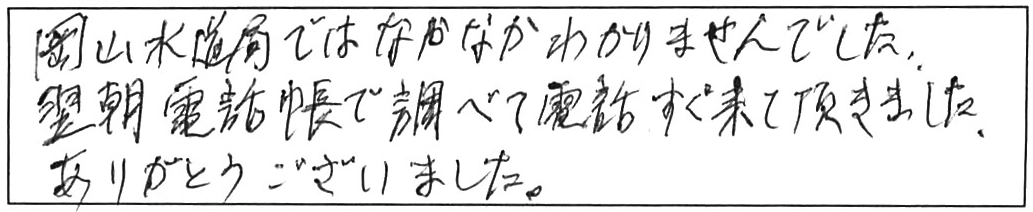 岡山水道局ではなかなかわかりませんでした、
翌朝電話帳で調べて電話すぐ来て頂きました、
ありがとうございました。